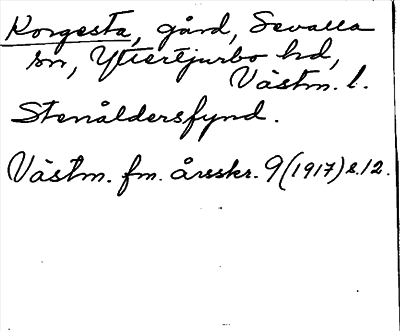 Korgesta, gård, Sevalla
sn, Yttertjurbo hd,
Västm. l.
Stenåldersfynd.
Västm. fm. årsskr. 9 (1917) s. 12.